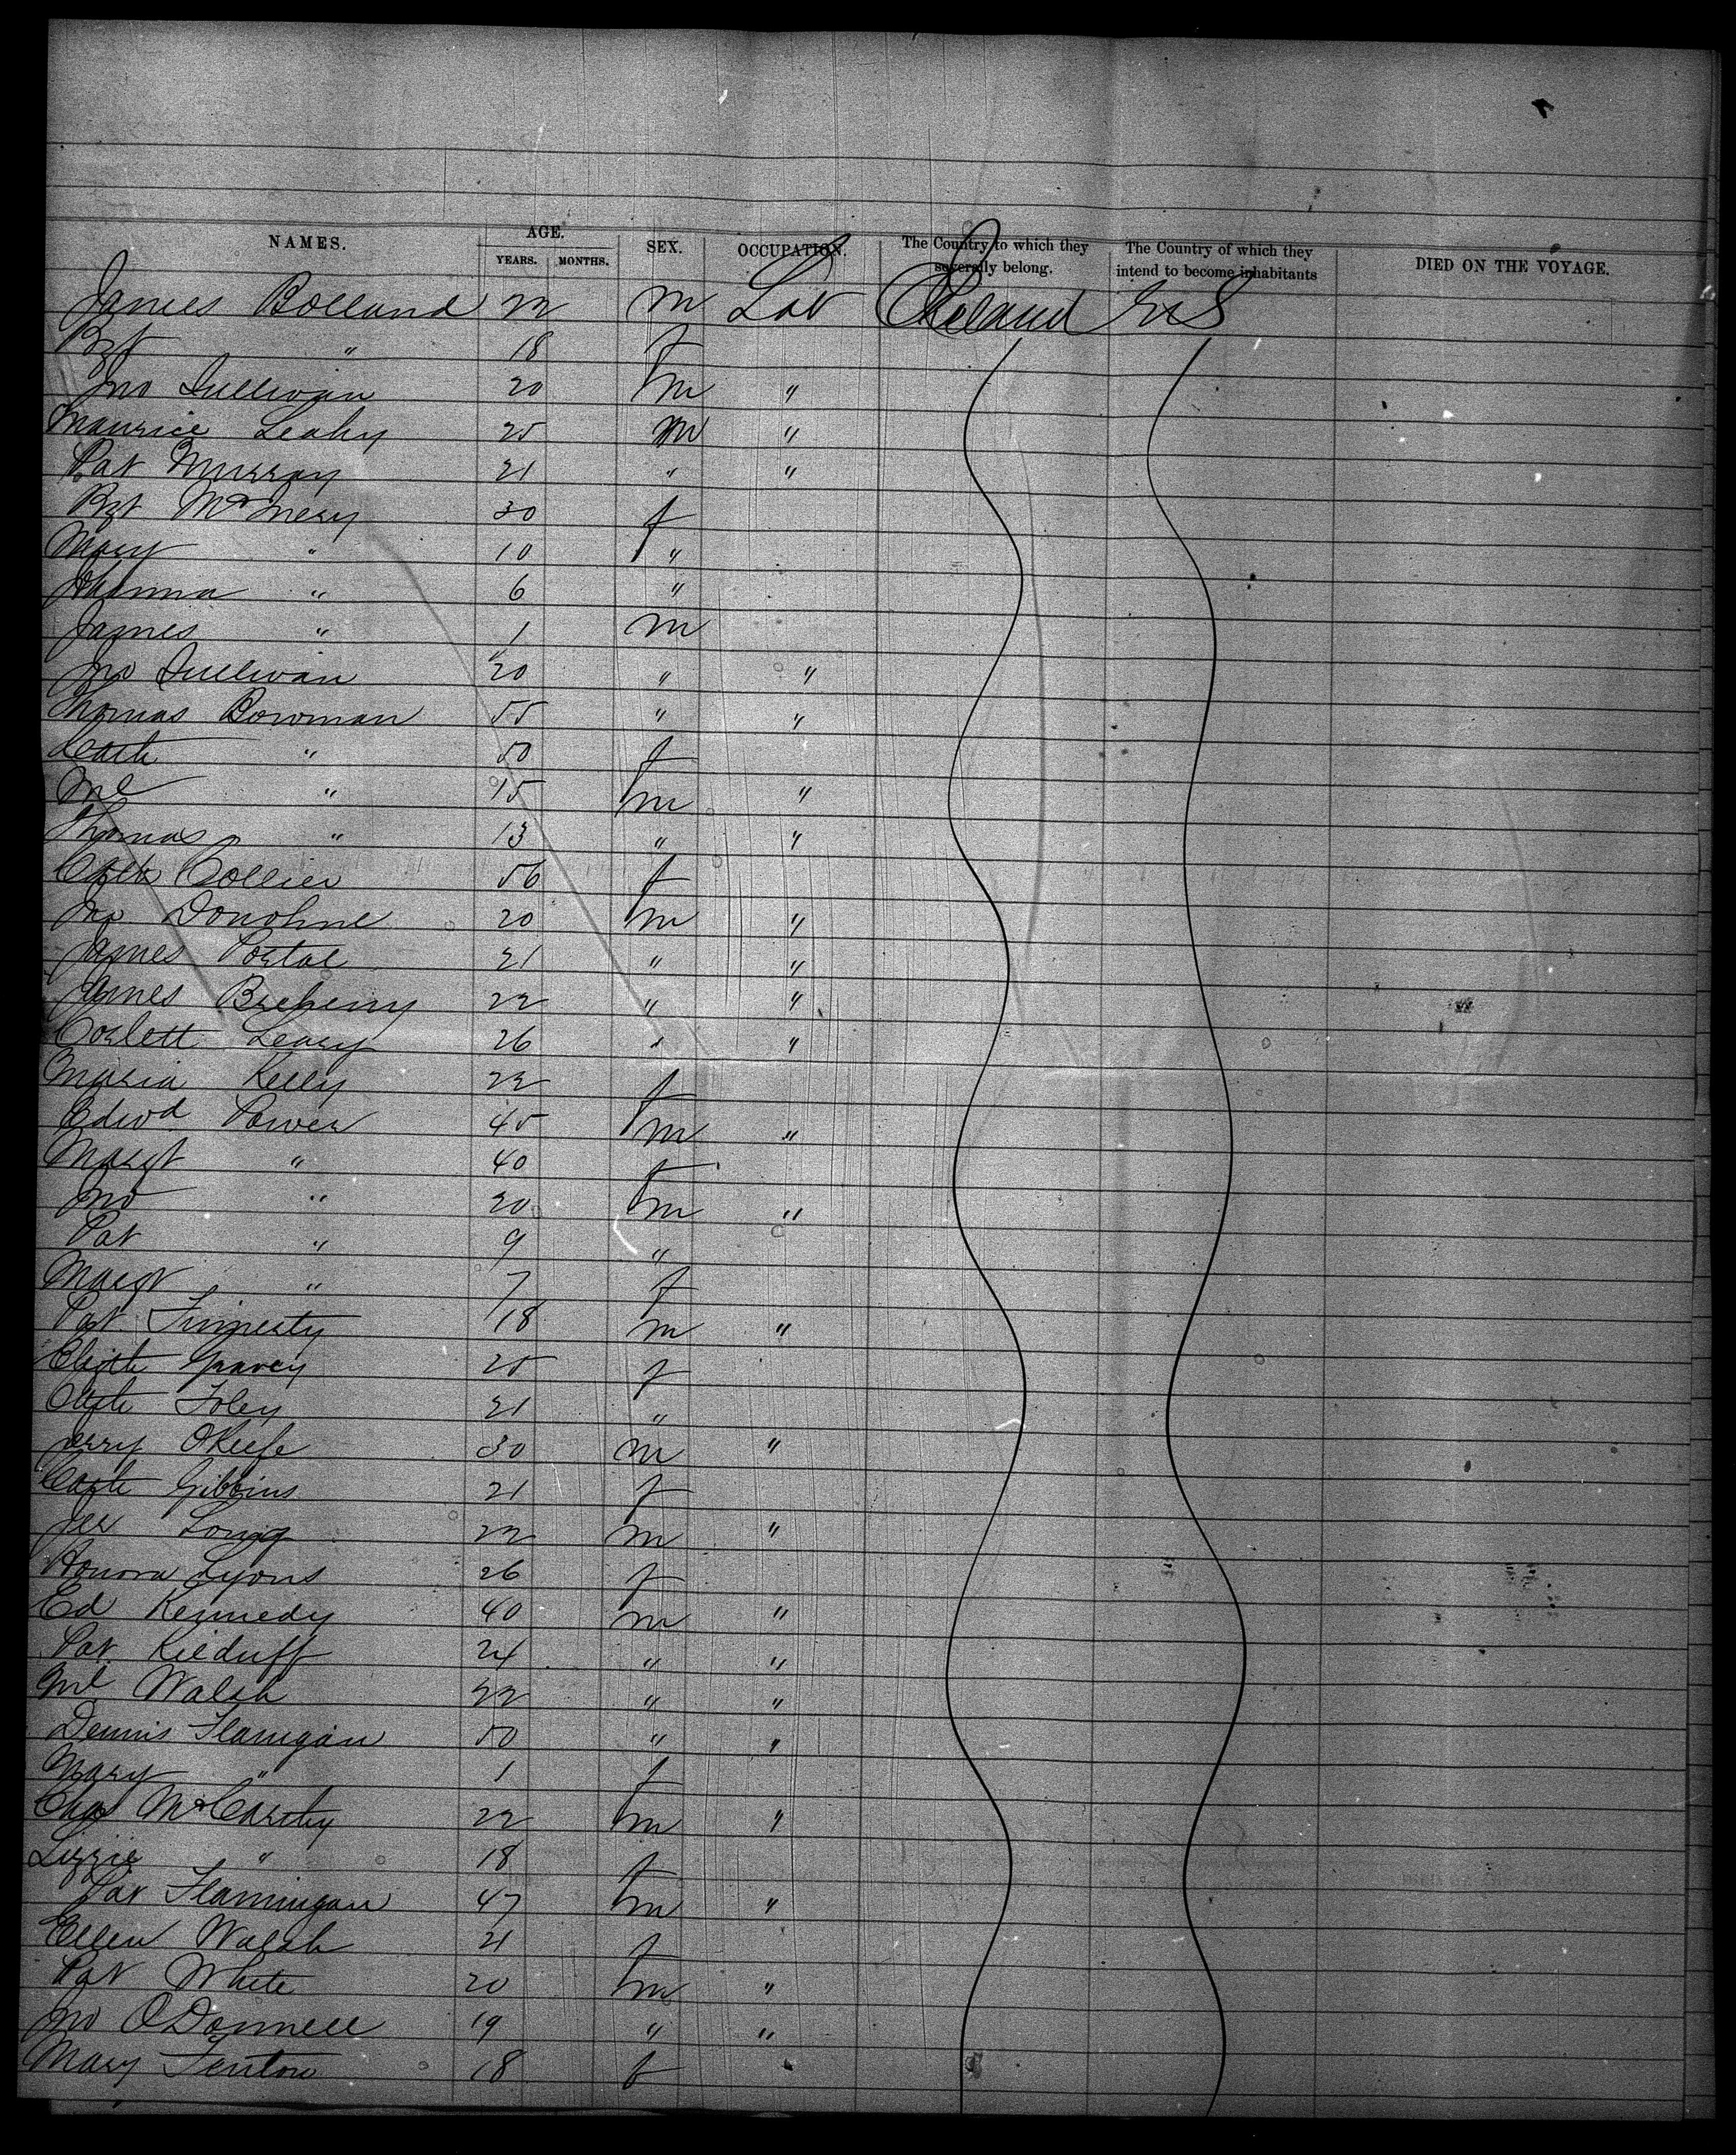 NAMES. AGE. SEX. OCCUPATION. The Country to which they severally belong. The Country of which they intend to become inhabitants DIED ON THE VOYAGE.
YEARS. MONTHS.
James Bolland 22 m Lab Ireland U S
Bgt " 18 f
Jno Sullivan 20 m "
Maurice Leahy 25 m "
Pat Murray 21 " "
Bgt McInery 30 f
Mary " 10 "
Johanna " 6 "
James " 1 m
Jno Sullivan 20 " "
Thomas Bowman 55 " "
Cath " 50 f
Ml " 15 m "
Thomas " 13 " "
Cath Collier 56 f
Jno Donohue 20 m "
James Postal 21 " "
James Breheny 22 " "
Corlett Leary 26 " "
Maria Kelly 22 f
Edwd Power 45 m "
Margt " 40 f
Jno " 20 m "
Pat " 9 "
Margt " 7 f
Pat Finnerty 18 m "
Elizth Garvey 25 f
Cath Foley 21 "
Jerry OKeefe 30 m "
Cath Gibbins 21 f
Jer Long 22 m "
Honora Lyons 26 f
Ed Kennedy 40 m "
Pat Kilduff 24 " "
Ml Walsh 22 " "
Dennis Flanigan 50 " "
Mary " 1 f
Chas McCarthy 22 m "
Lizzie " 18 f
Pat Flanningan 47 m "
Ellen Walsh 21 f
Pat White 20 m "
Jno O'Donnell 19 " "
Mary Fenton 18 f